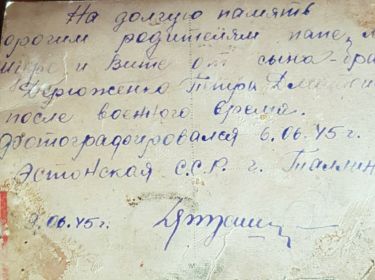 На долгую память
орогим родителям папе, м
и Вите от сына-бра
Петра Дм
после военного время.
Фотографировался 6.06.45 г.
Эстонская С.С.Р. г. Таллин
9.06.45 г.